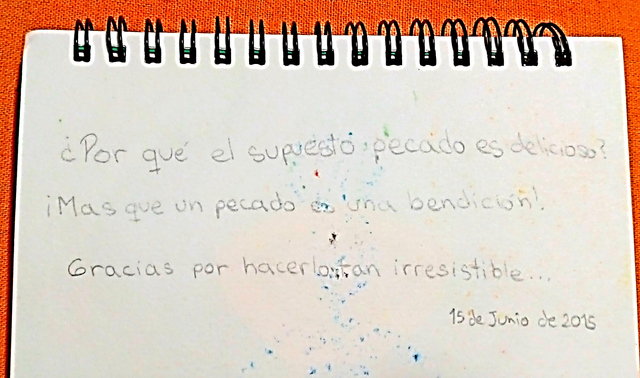 ¿Por qué el supuesto pecado es delicioso?
¡Mas que un pecado es una bendición!
Gracias por hacerlo tan irresistible...
15 de Junio de 2015